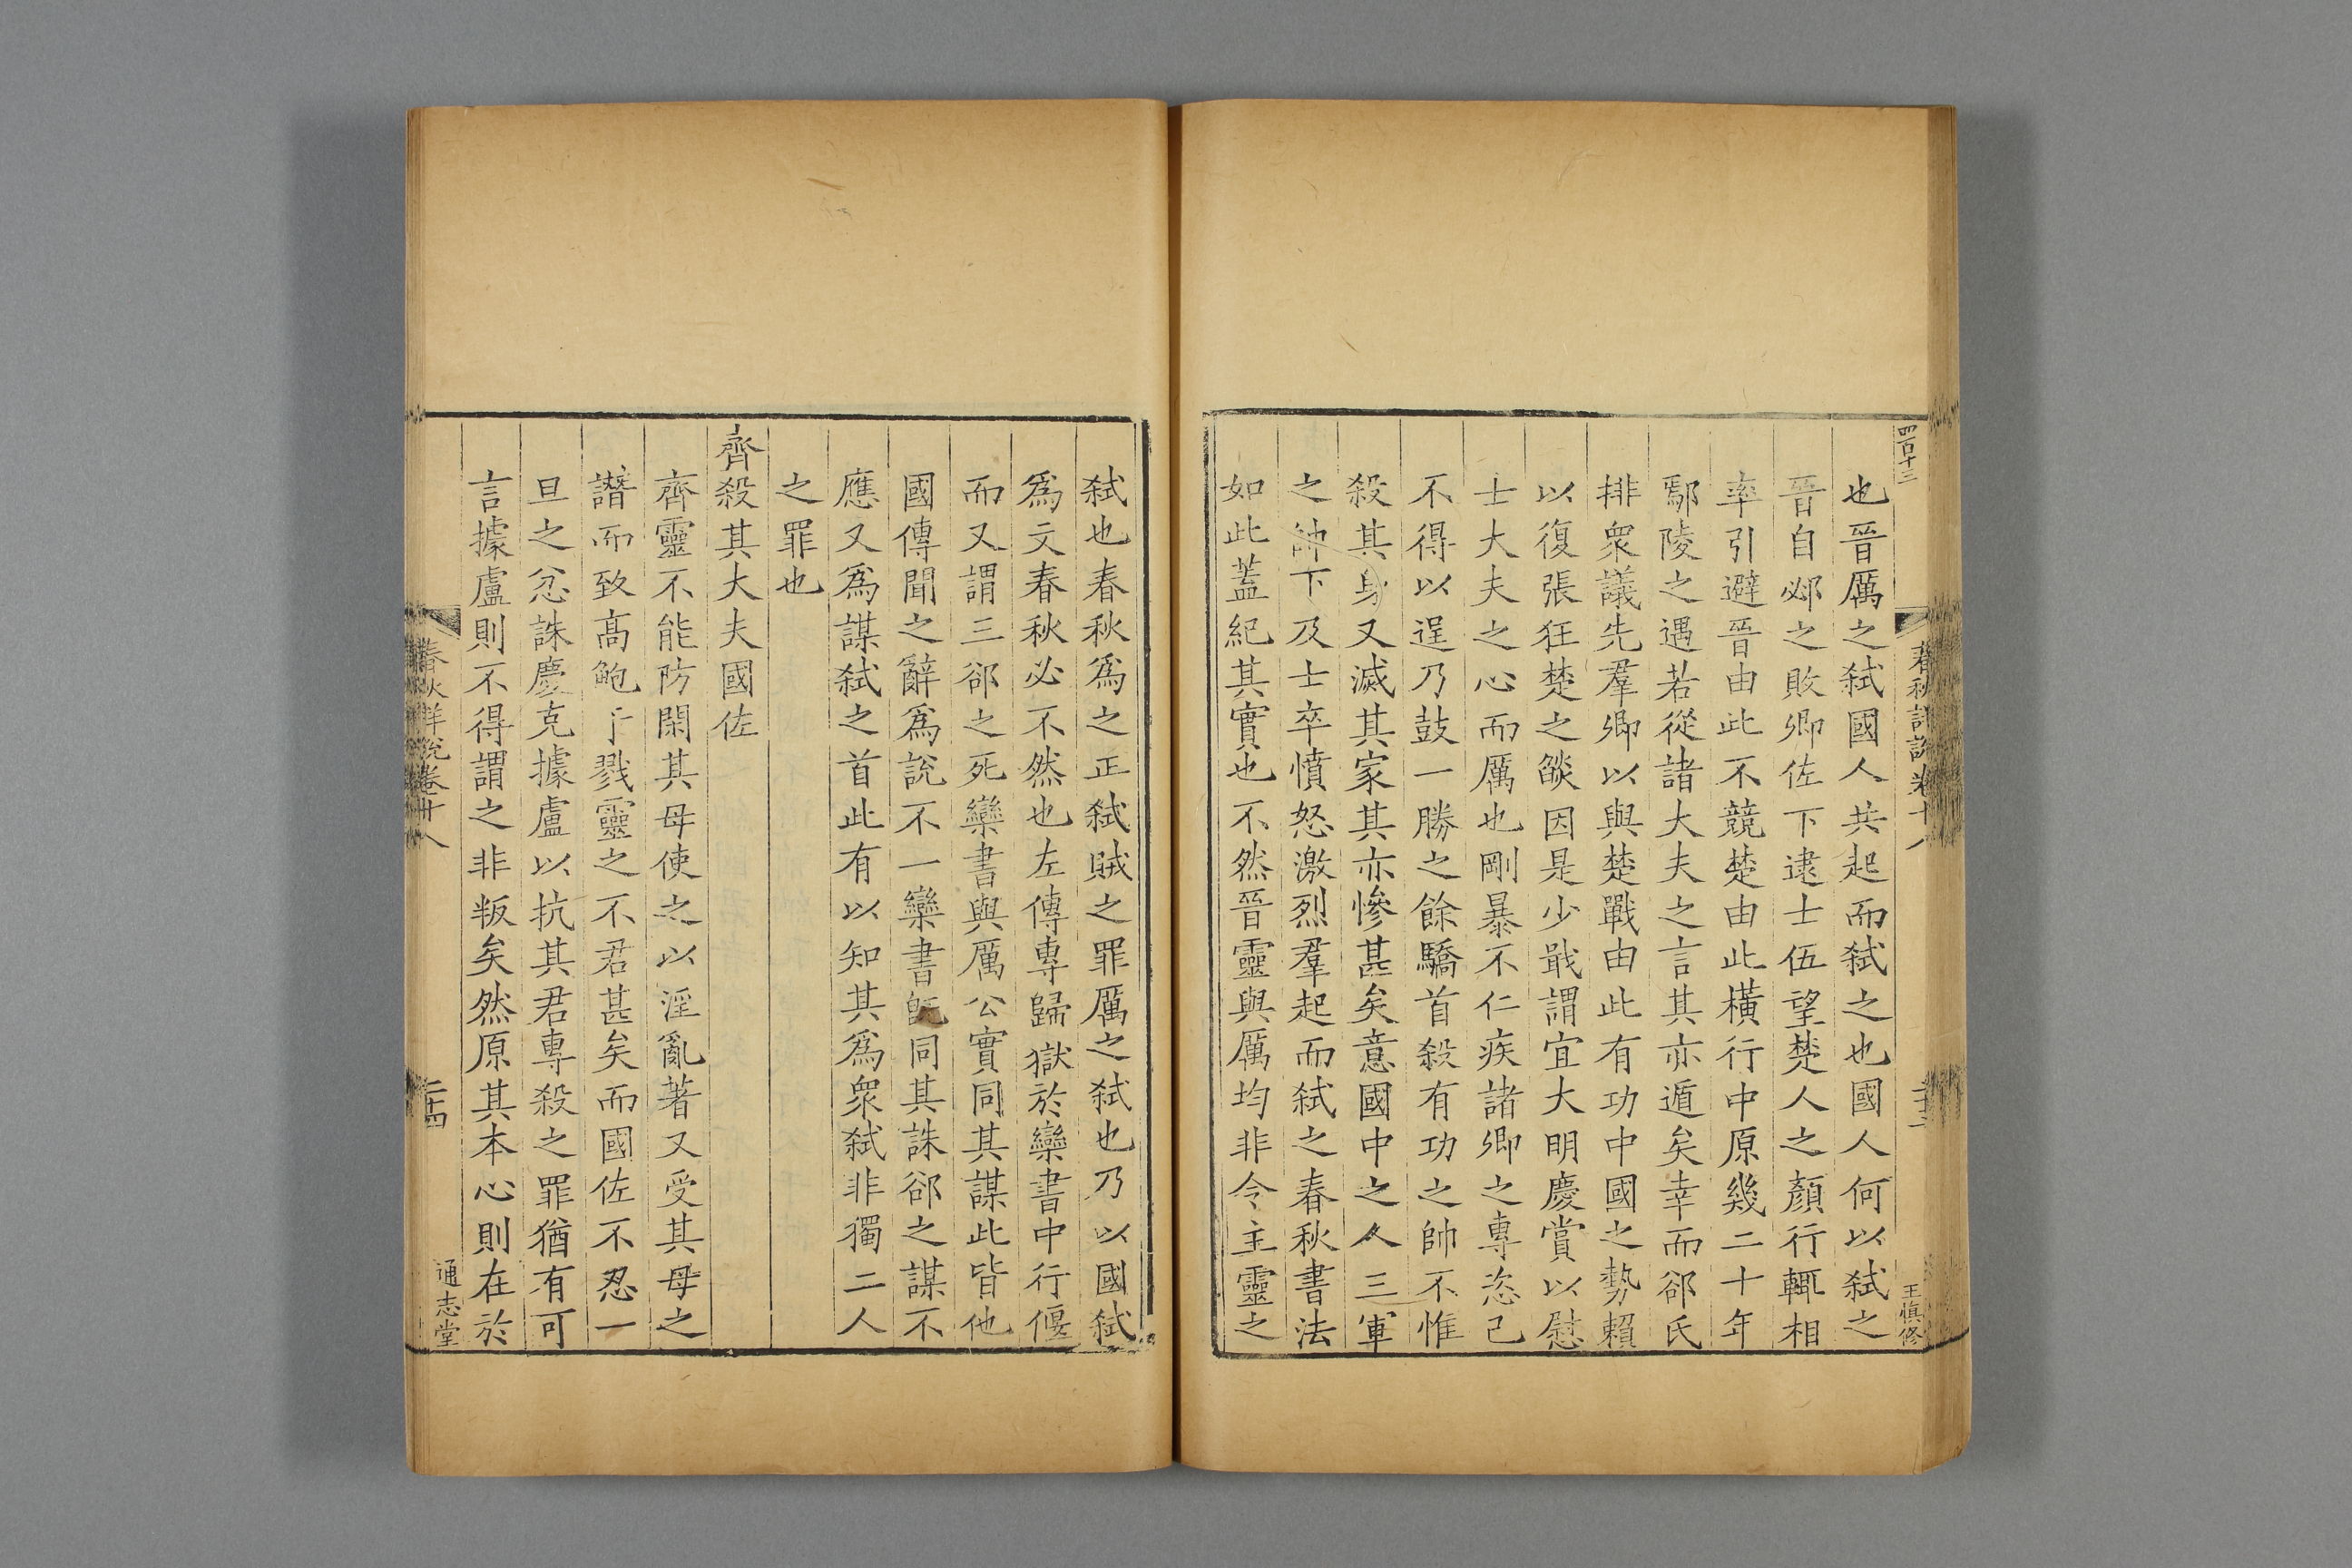 四百十三
春秋詳說卷十八
王慎修
也晉厲之弑國人共起而弑之也國人何以弑之
晉自邲之敗卿佐下逮士伍望楚人之顏行輒相
率引避晉由此不競楚由此橫行中原幾二十年
鄢陵之遇若從諸大夫之言其亦遁矣幸而郤氏
排衆議先羣卿以與楚戰由此有功中國之勢賴
以復張狂楚之燄因是少戢謂宜大明慶賞以慰
士大夫之心而厲也剛暴不仁疾諸卿之專恣己
不得以逞乃鼓一勝之餘驕首殺有功之帥不惟
殺其身又滅其家其亦慘甚矣意國中之人三軍
之帥下及士卒憤怒激烈羣起而弑之春秋書法
如此蓋紀其實也不然晉靈與厲均非令主靈之
弑也春秋爲之正弑賊之罪厲之弑也乃以國弑
爲文春秋必不然也左傳專歸獄於欒書中行偃
而又謂三郤之死欒書與厲公實同其謀此皆他
國傳聞之辭爲說不一欒書旣同其誅郤之謀不
應又爲謀弑之首此有以知其爲衆弑非獨二人
之罪也
齊殺其大夫國佐
齊靈不能防閑其母使之以淫亂著又受其母之
譖而致高鮑于戮靈之不君甚矣而國佐不忍一
旦之忿誅慶克據盧以抗其君專殺之罪猶有可
言據盧則不得謂之非叛矣然原其本心則在於
春秋詳說卷十八
二十四
通志堂